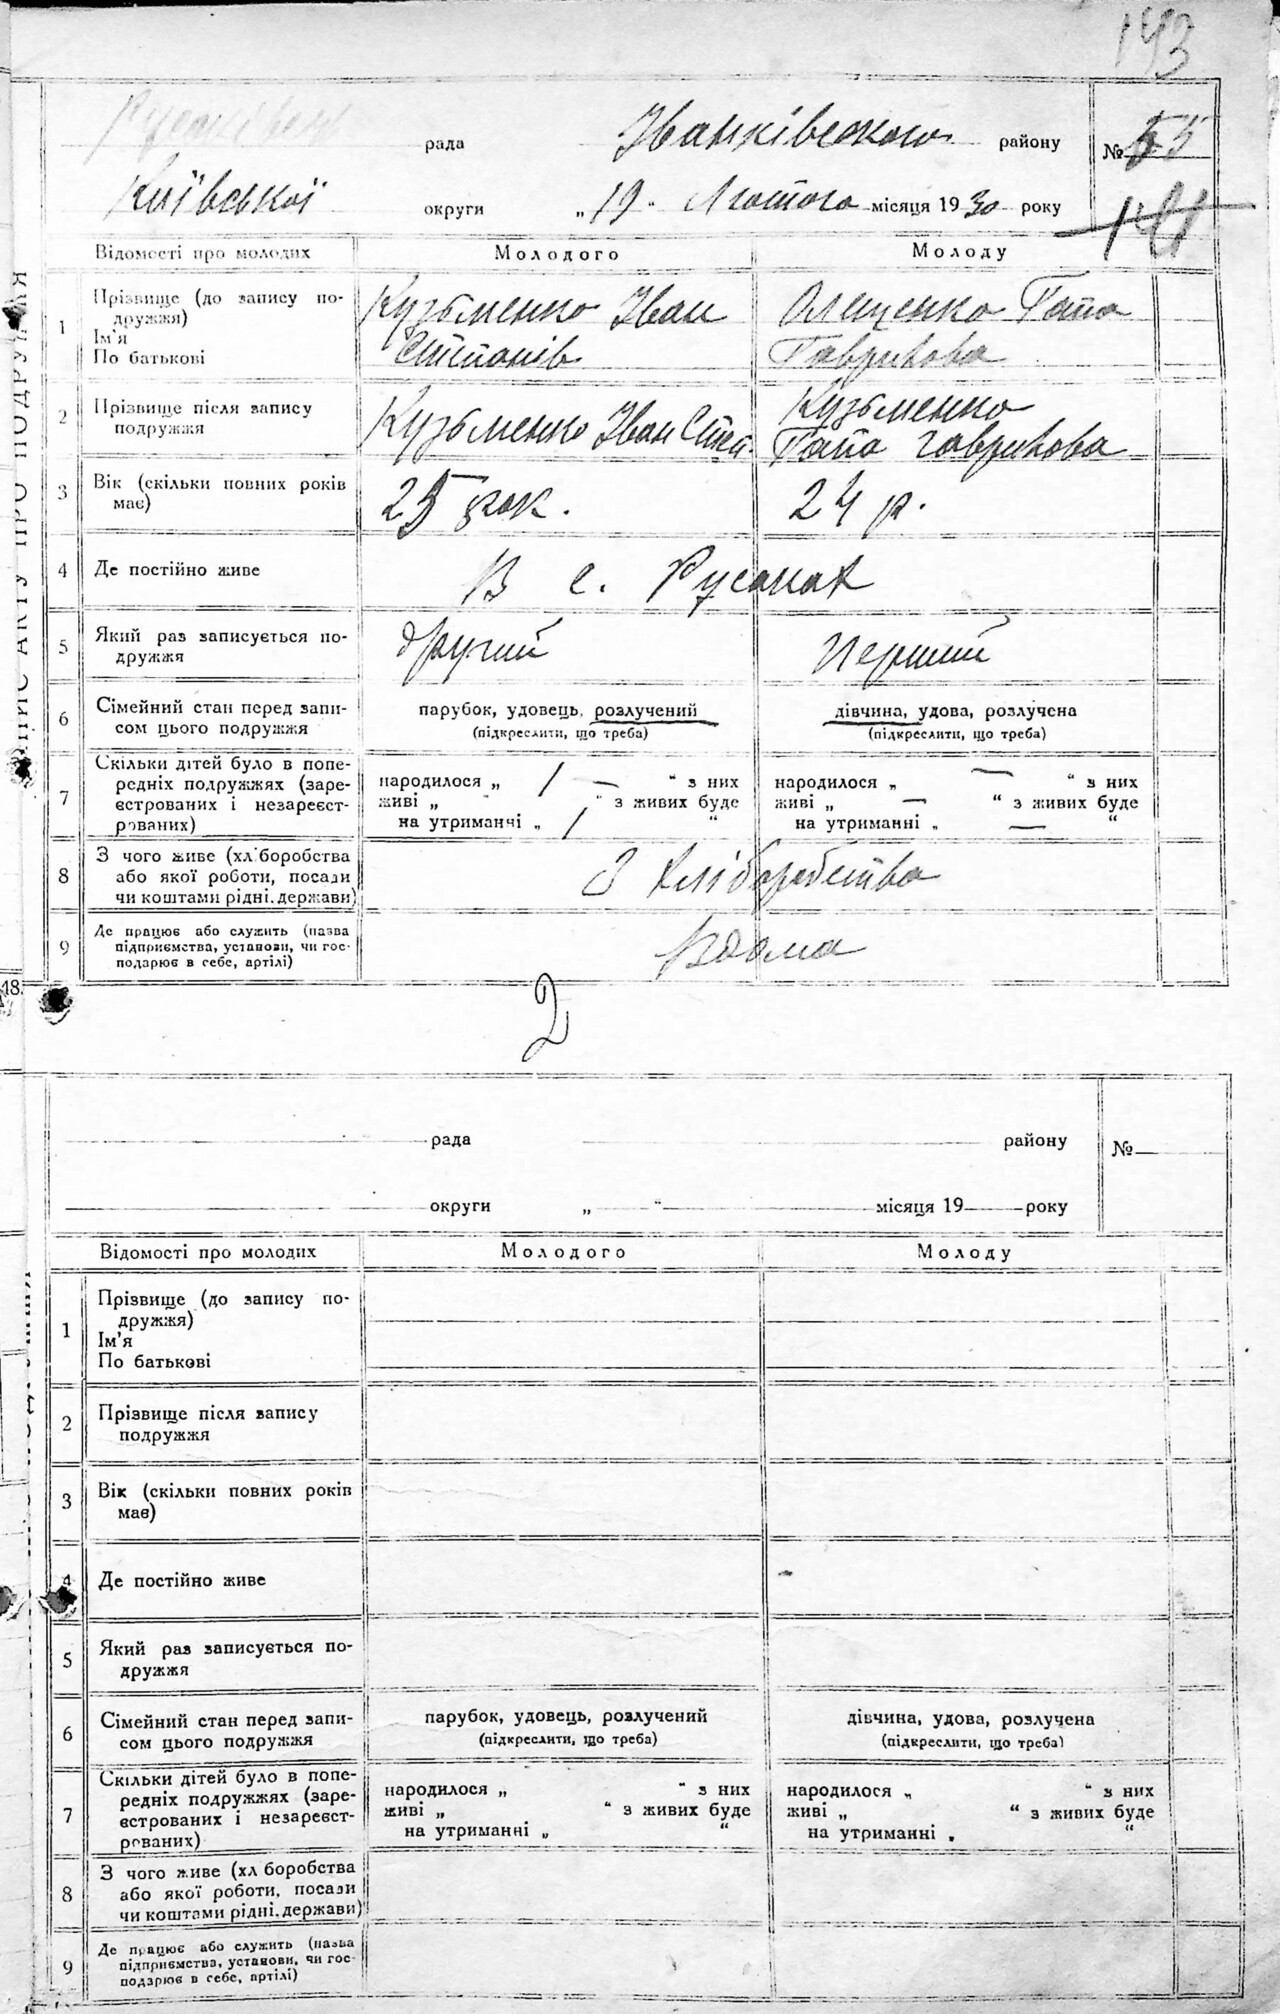 143
рада Іванківського району № 55
Київської округи „19" Лютого місяця 1930 року
Відомості про молодих Молодого Молоду
1 Прізвище (до запису по-
дружжя)
Ім'я
По батькові
Кузьменко Іван
Степанів
Олещенко Гапа
Гаврилова
2 Прізвище після запису
подружжя
Кузьменко Іван Степ.
Кузьменко
Гапа Гаврилова
3 Вік (скільки повних років
має)
25 рок.
24 р.
4 Де постійно живе
В с. Русаках
5 Який раз записується по-
дружжя
другий
перший
6 Сімейний стан перед запи-
сом цього подружжя
парубок, удовець, розлучений
(підкреслити, що треба)
дівчина, удова, розлучена
(підкреслити, що треба)
7 Скільки дітей було в попе-
редніх подружжях (заре-
єстрованих і незареєст-
рованих)
народилося „ / — " з них
живі „ " з живих буде
на утриманні „ / "
народилося „ — " з них
живі „ — " з живих буде
на утриманні „ — "
8 З чого живе (хліборобства
або якої роботи, посади
чи коштами рідні, держави)
З хліборобства
9 Де працює або служить (назва
підприємства, установи, чи гос-
подарює в себе, артілі)
Вдома
18
2
рада району №
округи „ " місяця 19 року
Відомості про молодих Молодого Молоду
1 Прізвище (до запису по-
дружжя)
Ім'я
По батькові
2 Прізвище після запису
подружжя
3 Вік (скільки повних років
має)
4 Де постійно живе
5 Який раз записується по-
дружжя
6 Сімейний стан перед запи-
сом цього подружжя
парубок, удовець, розлучений
(підкреслити, що треба)
дівчина, удова, розлучена
(підкреслити, що треба)
7 Скільки дітей було в попе-
редніх подружжях (заре-
єстрованих і незареєст-
рованих)
народилося „ " з них
живі „ " з живих буде
на утриманні „ "
народилося „ " з них
живі „ " з живих буде
на утриманні „ "
8 З чого живе (хліборобства
або якої роботи, посади
чи коштами рідні, держави)
9 Де працює або служить (назва
підприємства, установи, чи гос-
подарює в себе, артілі)